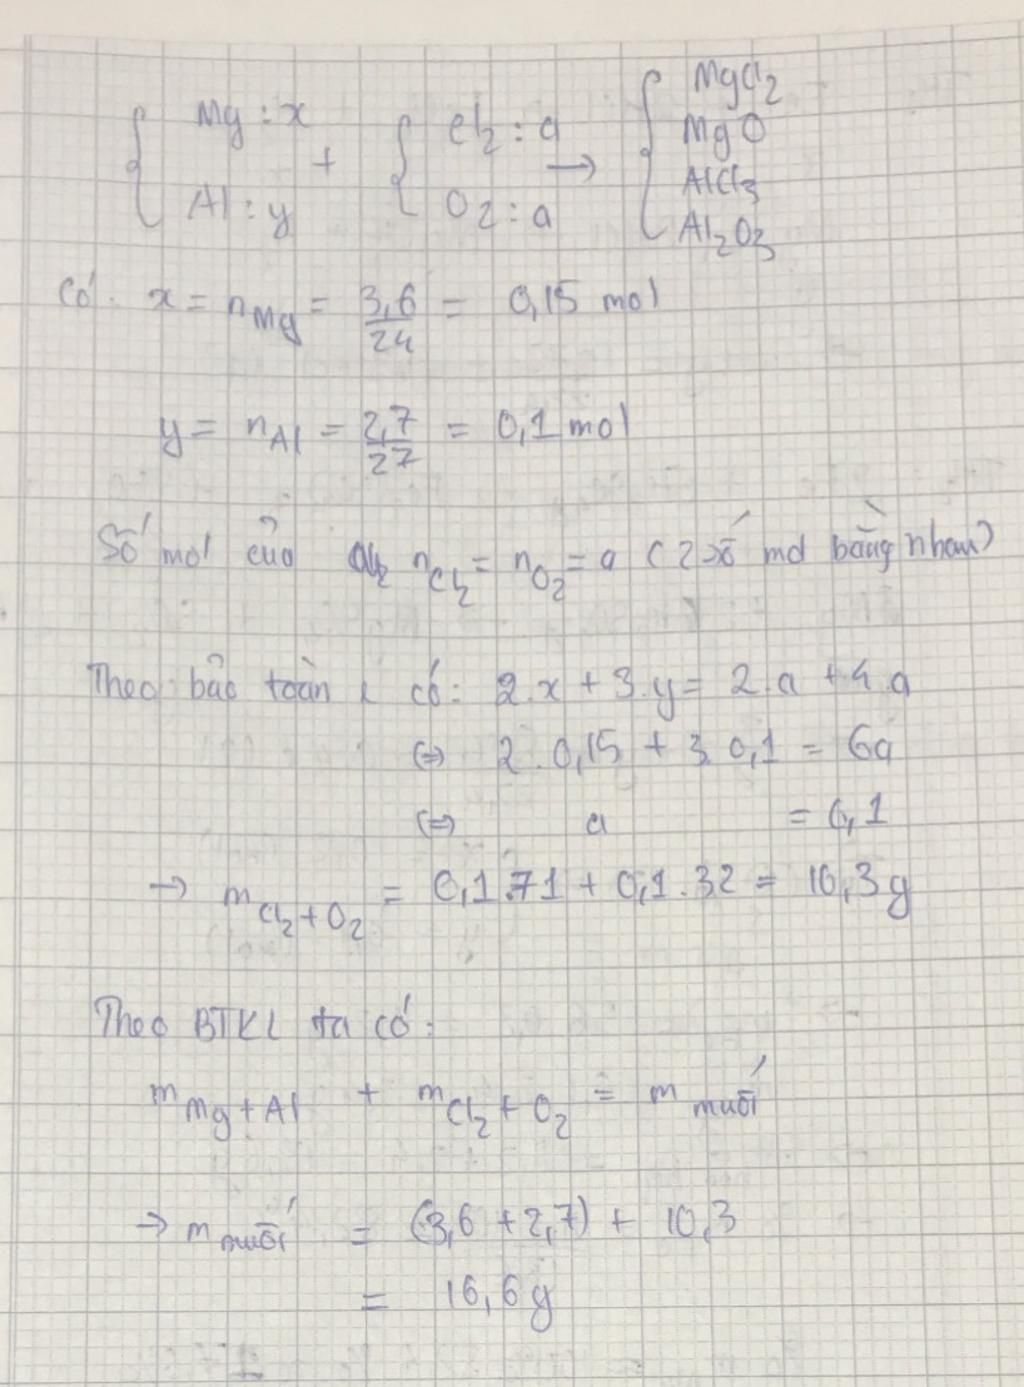 { Mg : x + { Cl₂ : a → { MgCl₂
Al : y O₂ : a MgO
AlCl₃
Al₂O₃
Có: x = n_Mg = 3,6/24 = 0,15 mol
y = n_Al = 2,7/27 = 0,1 mol
Số mol của n_Cl₂ = n_O₂ = a (2 số mol bằng nhau)
Theo bảo toàn e có: 2.x + 3.y = 2.a + 4.a
⇔ 2.0,15 + 3.0,1 = 6a
⇔ a = 0,1
→ m_Cl₂+O₂ = 0,1.71 + 0,1.32 = 10,3g
Theo BTKL ta có:
m_Mg+Al + m_Cl₂+O₂ = m_muối
→ m_muối = (3,6 + 2,7) + 10,3
= 16,6g